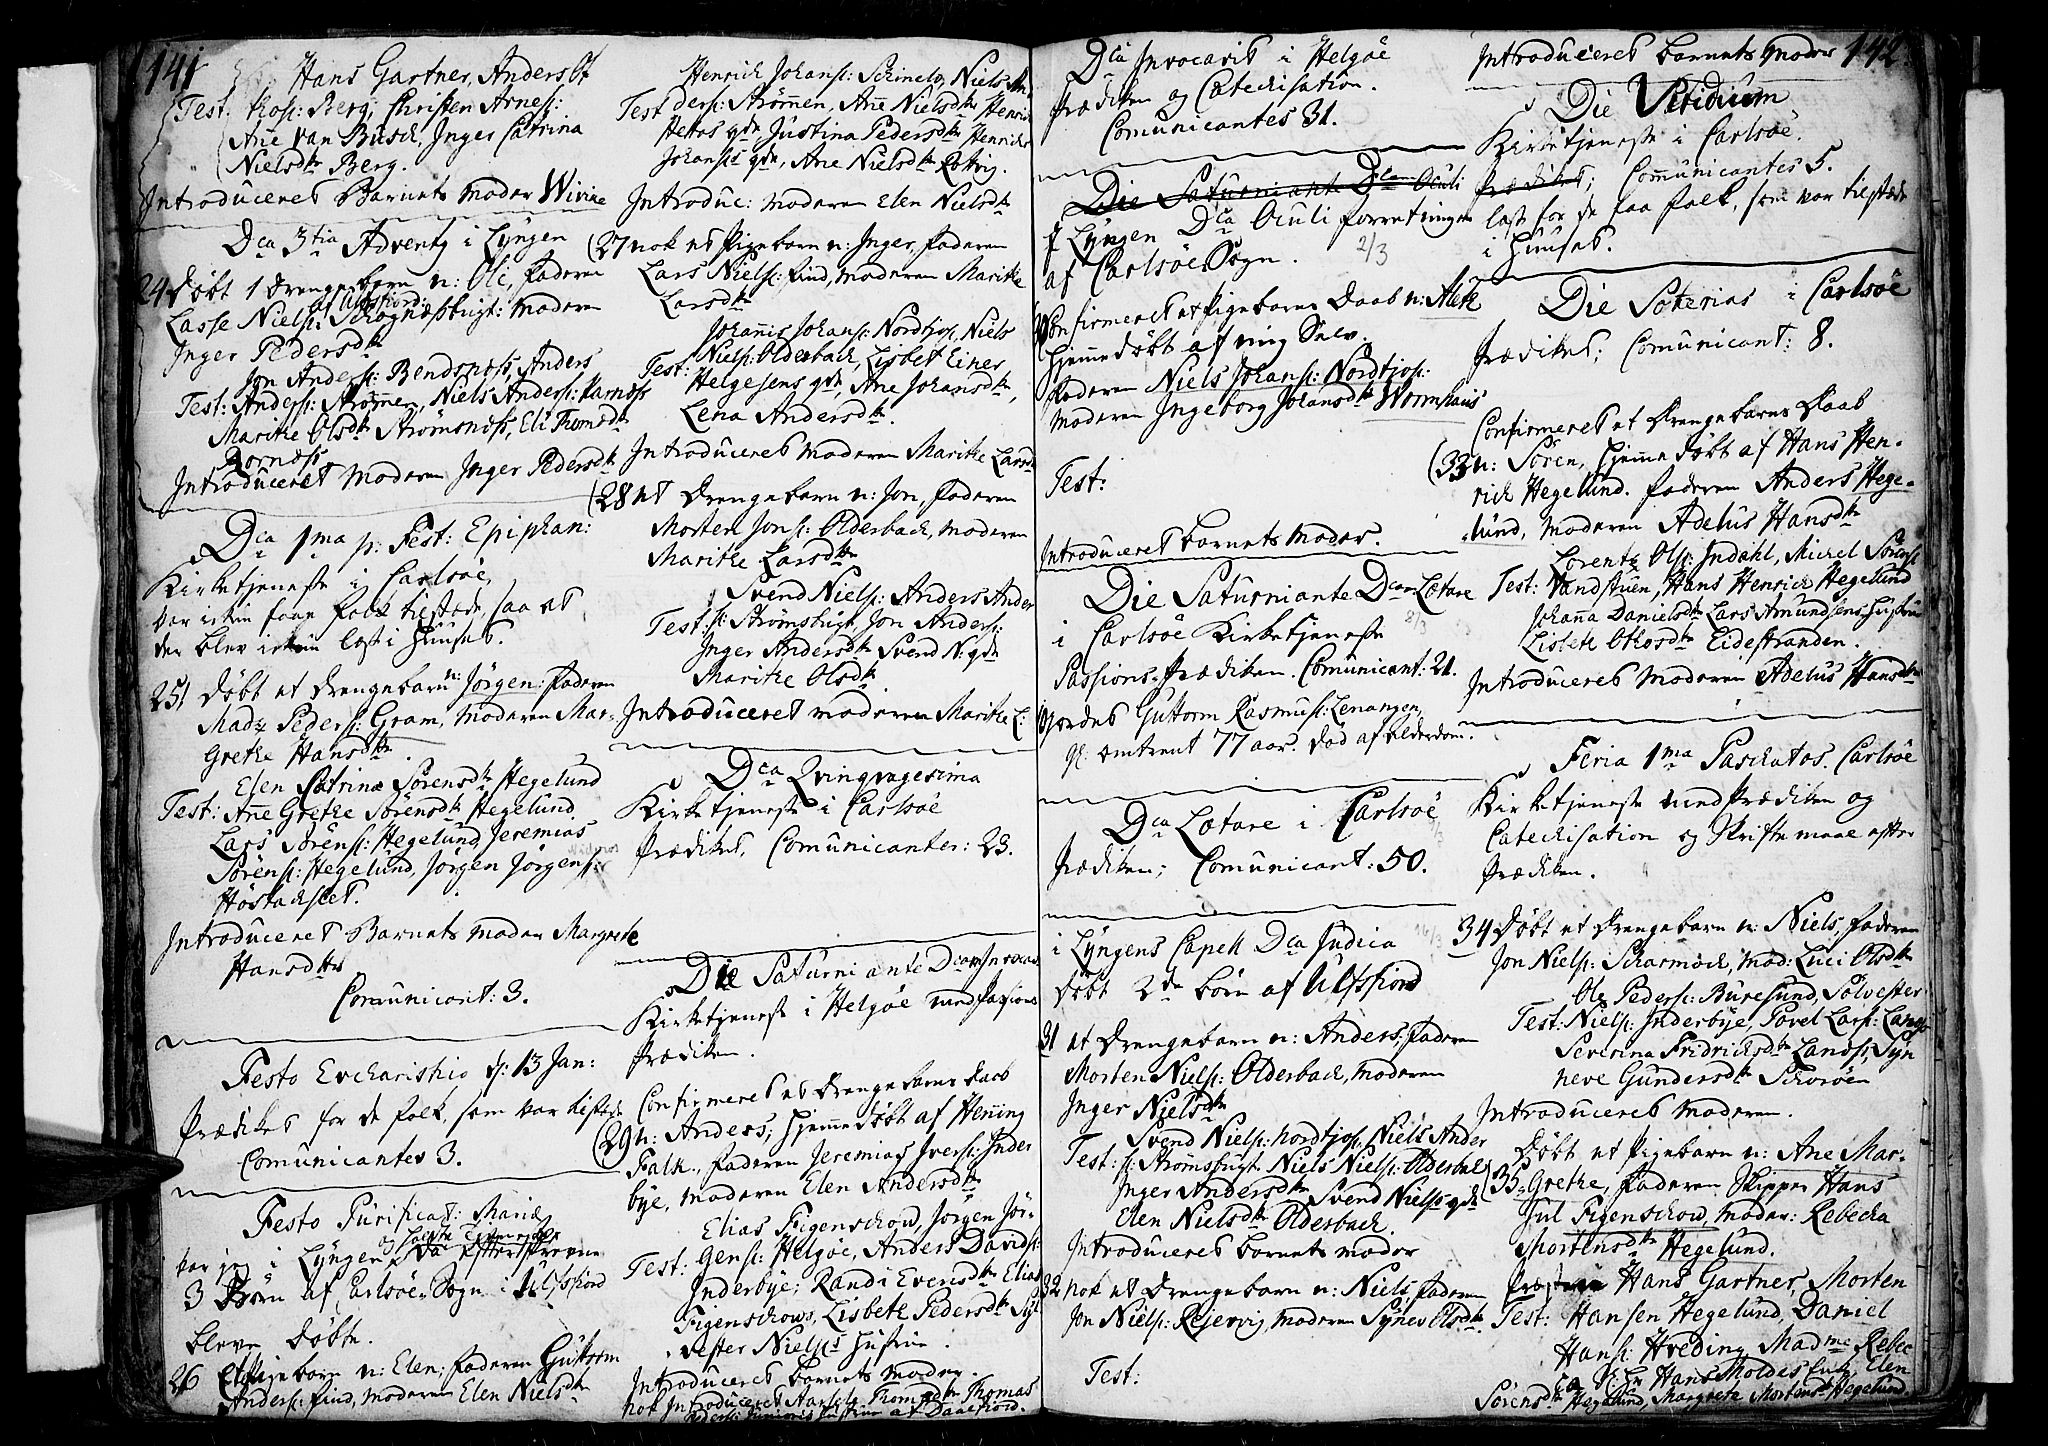 141
Hans Gartner, Anders Ol
Test: Berg, Christen Arnes:
Ane Van Busch, Inger Catrina
Nielsdtr Berg.
Introduceret Barnets Moder Wivike
Dca 3tia Adventg i Lyngen
24 Døbt 1 Drengebarn n: Ole, faderen
af Ulfsfiord:
Lasse Niels: moderen
Inger Pedersdtr
Jon Anders: Bendsnoss, Anders
Test: Anders: Strømmen, Niels Anders:
Maritte Olsdtr Strømsnoss, Eli Thomsdtr
Rornæss
Introduceret Moderen Inger Pedersdtr
Dca 1ma p: Fest: Epiphan:
Kirketjeneste i Carlsöe,
var ickun faae folk tilstæde, saa at
der blev ickun læst i Huuset.
25 Døbt et Drengebarn n: Jörgen: faderen
Madz Peders: Gram, Moderen Mar-
Grethe Hansdtr.
Elen Catrina Sörensdtr Hegelund
Test: Ane Grethe Sörensdtr Hegelund
Lars Sörens: Hegelund, Jeremias
Sörens: Hegelund, Jörgen Jörgens:
Introduceret Barnets Moder Margrete
Hansdtr
Comunicant: 3.
Festo Evcharistio d: 13 Jan:
Prædiket for de folk, som var tilstæde
Comunicantes 3.
Festo Purificat: Mariæ
var jeg i Lyngen
3 Børn af Carlsöe Sogn i Ulfsfiord
bleve døbte.
26 Et Pigebarn n: Elen, faderen Guttorm
Anders: find, Moderen Elen Nielsdtr
Henrich Johans: Niels An
Test ders: Strømmen, Ane Nielsdtr Henrich
qde, Justina Pedersdtr Henrich
Johans: qde, Ane Nielsdtr
Introduc: Moderen Elen Nielsdtr
27 nok et Pigebarn n: Inger, faderen
Lars Niels: find, Moderen Maritte
Larsdtr
Johannis Johans: Nordkjos, Niels
Test: Niels: Olderback, Lisbet Einer
Helgesens qde, Ane Johansdtr,
Lena Andersdtr.
Introduceret Moderen Maritte Larsd
28 et Drengebarn n: Jon, faderen
Morten Jons: Olderback, Moderen
Maritte Larsdtr
Svend Niels: Anders Ander
Test: s: Strømsbugt, Jon Anders:
Inger Andersdtr Svend N: qde
Maritte Olsdtr
Introduceret moderen Maritte L:
Dca Qvinqvagesima
Kirketjeneste i Carlsöe
Prædiket, Comunicanter: 23.
Die Saturni ante Dcam Invocav
Kirketjeneste i Helgöe med Passions
Prædiken.
Confirmeret et Drengebarns Daab
29 n: Anders; hjemmedøbt af Hening
Falk, faderen Jeremias Ivers: Inder
bye, moderen Elen Andersdtr
Elias Figenschow, Jörgen Jör-
Test: gens: Helgöe, Anders Davids:
Inderbye; Randi Evensdtr Elias
Figenschows, Lisbeth Pedersdtr Syl
vester Niels: Hustrue.
Introduceret barnets moder.
nok Introduceret Thomas
Hustrue af
Dca Invocavit i Helgöe
Prædiken og Catechisation.
Comunicantes 31.
Die Saturni ante Dcam Oculi
i Lyngen Dca Oculi forretninger
2/3
af Carlsöe Sogn.
30 Confirmeret et Pigebarns Daab n: Aleth
hjemmedøbt af mig Selv.
faderen Niels Johans: Nordkjos:
moderen Ingeborg Johansdtr
Test:
Introduceret barnets Moder.
Die Saturni ante Dcam Lætare
8/3
i Carlsöe Kirketjeneste
Passions-Prædiken. Comunicant: 21.
Jordet Guttorm Rasmus: Lenangen,
gl: omtrent 77 aar. død af Alderdom.
Dca Lætare i Carlsöe
Prædiken; Comunicant: 50.
i Lyngens Capell Dca Judica
Døbt 2de børn af Ulfsfiord
31 et Drengebarn n: Anders, faderen
Morten Niels: Olderback, Moderen
Inger Nielsdtr
Svend Niels: Nordkjos, Niels Ander
Test: s: Strømsbugt Niels Niels: Olderbak
Inger Andersdtr Svend Niels: qde
Elen Nielsdtr Olderback.
Introduceret barnets moder
32 nok et Drengebarn n: Niels, faderen
Jon Niels: Rejervig, Moderen Synes Olsdtr.
Test:
142
Introduceret barnets moder
Die Viridium
Kirketjeneste i Carlsöe.
Prædiket; Comunicantes 5.
læst for de faa folk, som var tilstæde
i Huuset.
Die Soterias i Carlsöe
Prædiket; Comunicant: 8.
Confirmeret et Drengebarns Daab
33 n: Sören, hjemmedøbt af Hans Hen-
rich Hegelund. faderen Anders Hege-
lund, moderen Adelus Hansdtr
Lorentz Ols: Indahl, Michel Sörens:
Test: Vandstuen, Hans Henrich Hegelund
Johanna Danielsdtr Lars Amundsens Hustrue
Lisbeth Othosdtr Eidestranden.
Introduceret Moderen Adelus Hansdtr
Feria 1ma Paschatos. Carlsöe
Kirketjeneste med Prædiken og
Catechisation og Skriftemaal efter
Prædiken.
34 Døbt et Drengebarn n: Niels, faderen
Jon Niels: Scharmöck, Mod: Luci Olsdtr
Ole Peders: Buresund, Solvester
Test: Niels: Inderbye, Povel Lars:
Severina Fridrichsdtr Lanæss, Syn
neve Gundersdtr Schorøen
Introduceret Moderen.
Døbt et Pigebarn n: Ane Mar-
35 Grethe, faderen Skipper Hans
Jul Figenschow, moder: Rebecka
Mortensdtr Hegelund.
Hans Gartner, Morten
Test: Hansen Hegelund, Daniel
Hans: Hveding, Madme Rebec
ca Hans Moldes Enke, Elen
Sörensdtr Hegelund, Margrete Mortensd Hegelund.